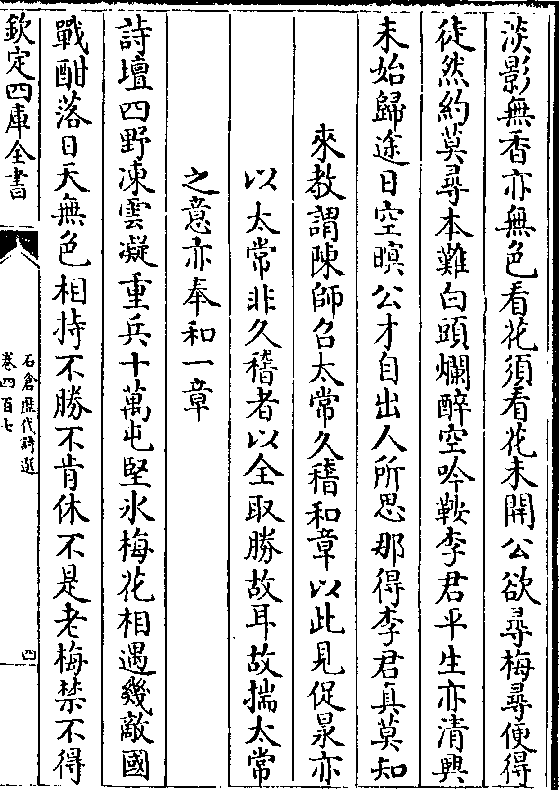 淡影無香亦無色看花須看花未開公欲尋梅尋便得
徒然約莫尋本難白頭爛醉空吟鞍李君平生亦清興
未始歸途日空暝公才自出人所思那得李君真莫知
來教謂陳師召太常久稽和章以此見促泉亦
以太常非久稽者以全取勝故耳故揣太常
之意亦奉和一章
詩壇四野凍雲凝重兵十萬屯堅氷梅花相遇幾敵國
戰酣落日天無色相持不勝不肯休不是老梅禁不得
欽定四庫全書
石倉歷代詩選
卷四百七
四